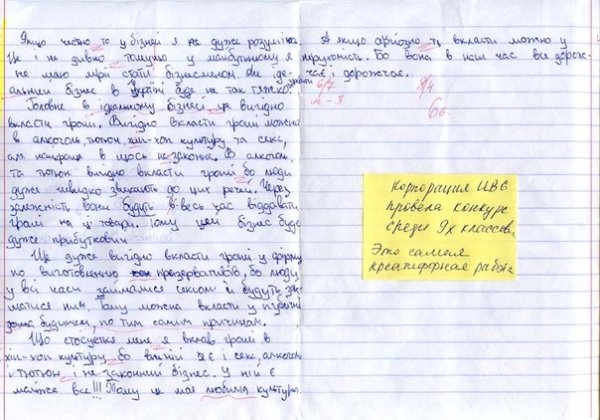 Якщо чесно то у бізнесі я не дуже розумію.
Це і не дивно, тому що у майбутньому я
не маю мрії стати бізнесменом. Але іде-
альним бізнес в Україні буде не так тяжко.
Головне в ідеальному бізнесі, це вигідно
вкласти гроші. Вигідно вкласти гроші можна
в алкоголь, тютюн, хіп-хоп культуру та секс,
а й в щось не законне. В алкоголь
та тютюн вигідно вкласти гроші бо люди
дуже швидко звикають до цих речей. Через
залежність вони будуть в весь час віддавати
гроші на ці товари. Тому цей бізнес буде
дуже прибутковим.
Ще дуже вигідно вкласти гроші у фірму
по виготовленню презервативів, бо люди
у всі часи займалися сексом й будуть зай-
матися ним. Тому можна вкласти у публічні
дома будинки, по тим самим причинам.
Що стосується мене я вклав гроші в
хіп-хоп культуру, бо в ній є і секс, алкоголь
і тютюн, і не законний бізнес. У ній є
майже все!!! Тому це моя любима культура.
А якщо серйозно то вкласти можна у
нерухомість. Бо вона в наш час все дорож-
чає і дорожчає.
6/7
м-3
8/4
6б.
Корпорация ИВЄ
провела конкурс
среди 9х классов.
Это самая
креатифорная работа